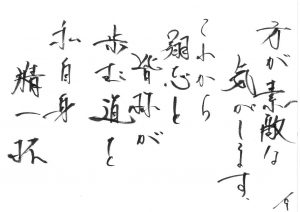 方が素敵な
気がします。
これから
翔忘と
皆孫が
歩む道と
私自身
精一杯